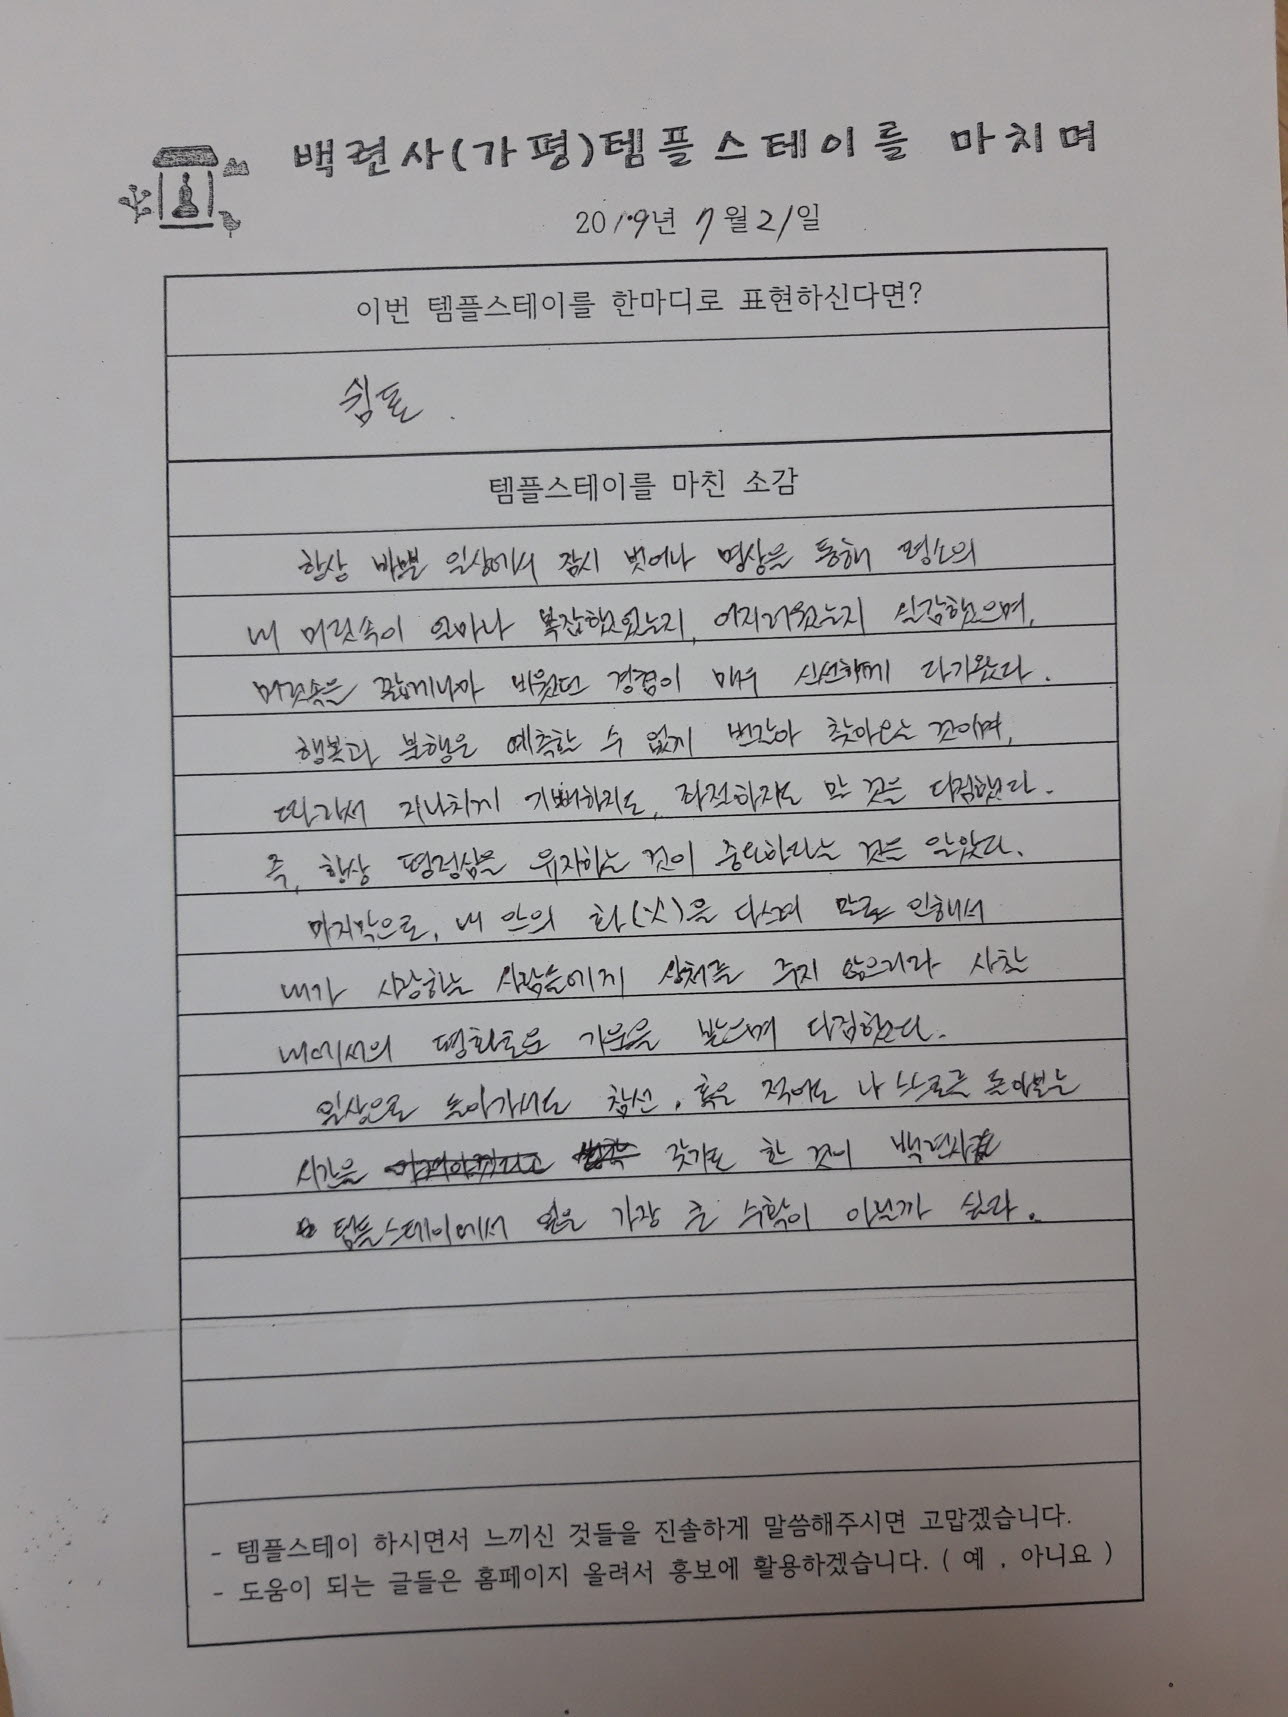 백련사(가평)템플스테이를 마치며
2019년 7월 21일
이번 템플스테이를 한마디로 표현하신다면?
쉼표.
템플스테이를 마친 소감
항상 바쁜 일상에서 잠시 벗어나 명상을 통해 평소의
내 머릿속이 얼마나 복잡했었는지, 어지러웠는지 실감했으며,
머릿속을 짧게나마 비웠던 경험이 매우 신선하게 다가왔다.
행복과 불행은 예측할 수 없게 번갈아 찾아오는 것이며,
따라서 지나치게 기뻐하지도, 좌절하지도 말 것을 다짐했다.
즉, 항상 평정심을 유지하는 것이 중요하다는 것을 알았다.
마지막으로, 내 안의 화(火)을 다스며 말로 인해서
내가 사랑하는 사람들에게 상처를 주지 않으리라 사찰
내에서의 평화로운 기운을 받으며 다짐했다.
일상으로 돌아가서도 참선, 혹은 적어도 나 스스로를 돌아보는
시간을 갖기로 한 것이 백련사
템플스테이에서 얻은 가장 큰 수확이 아닐까 싶다.
- 템플스테이 하시면서 느끼신 것들을 진솔하게 말씀해주시면 고맙겠습니다.
- 도움이 되는 글들은 홈페이지 올려서 홍보에 활용하겠습니다. ( 예 , 아니요 )